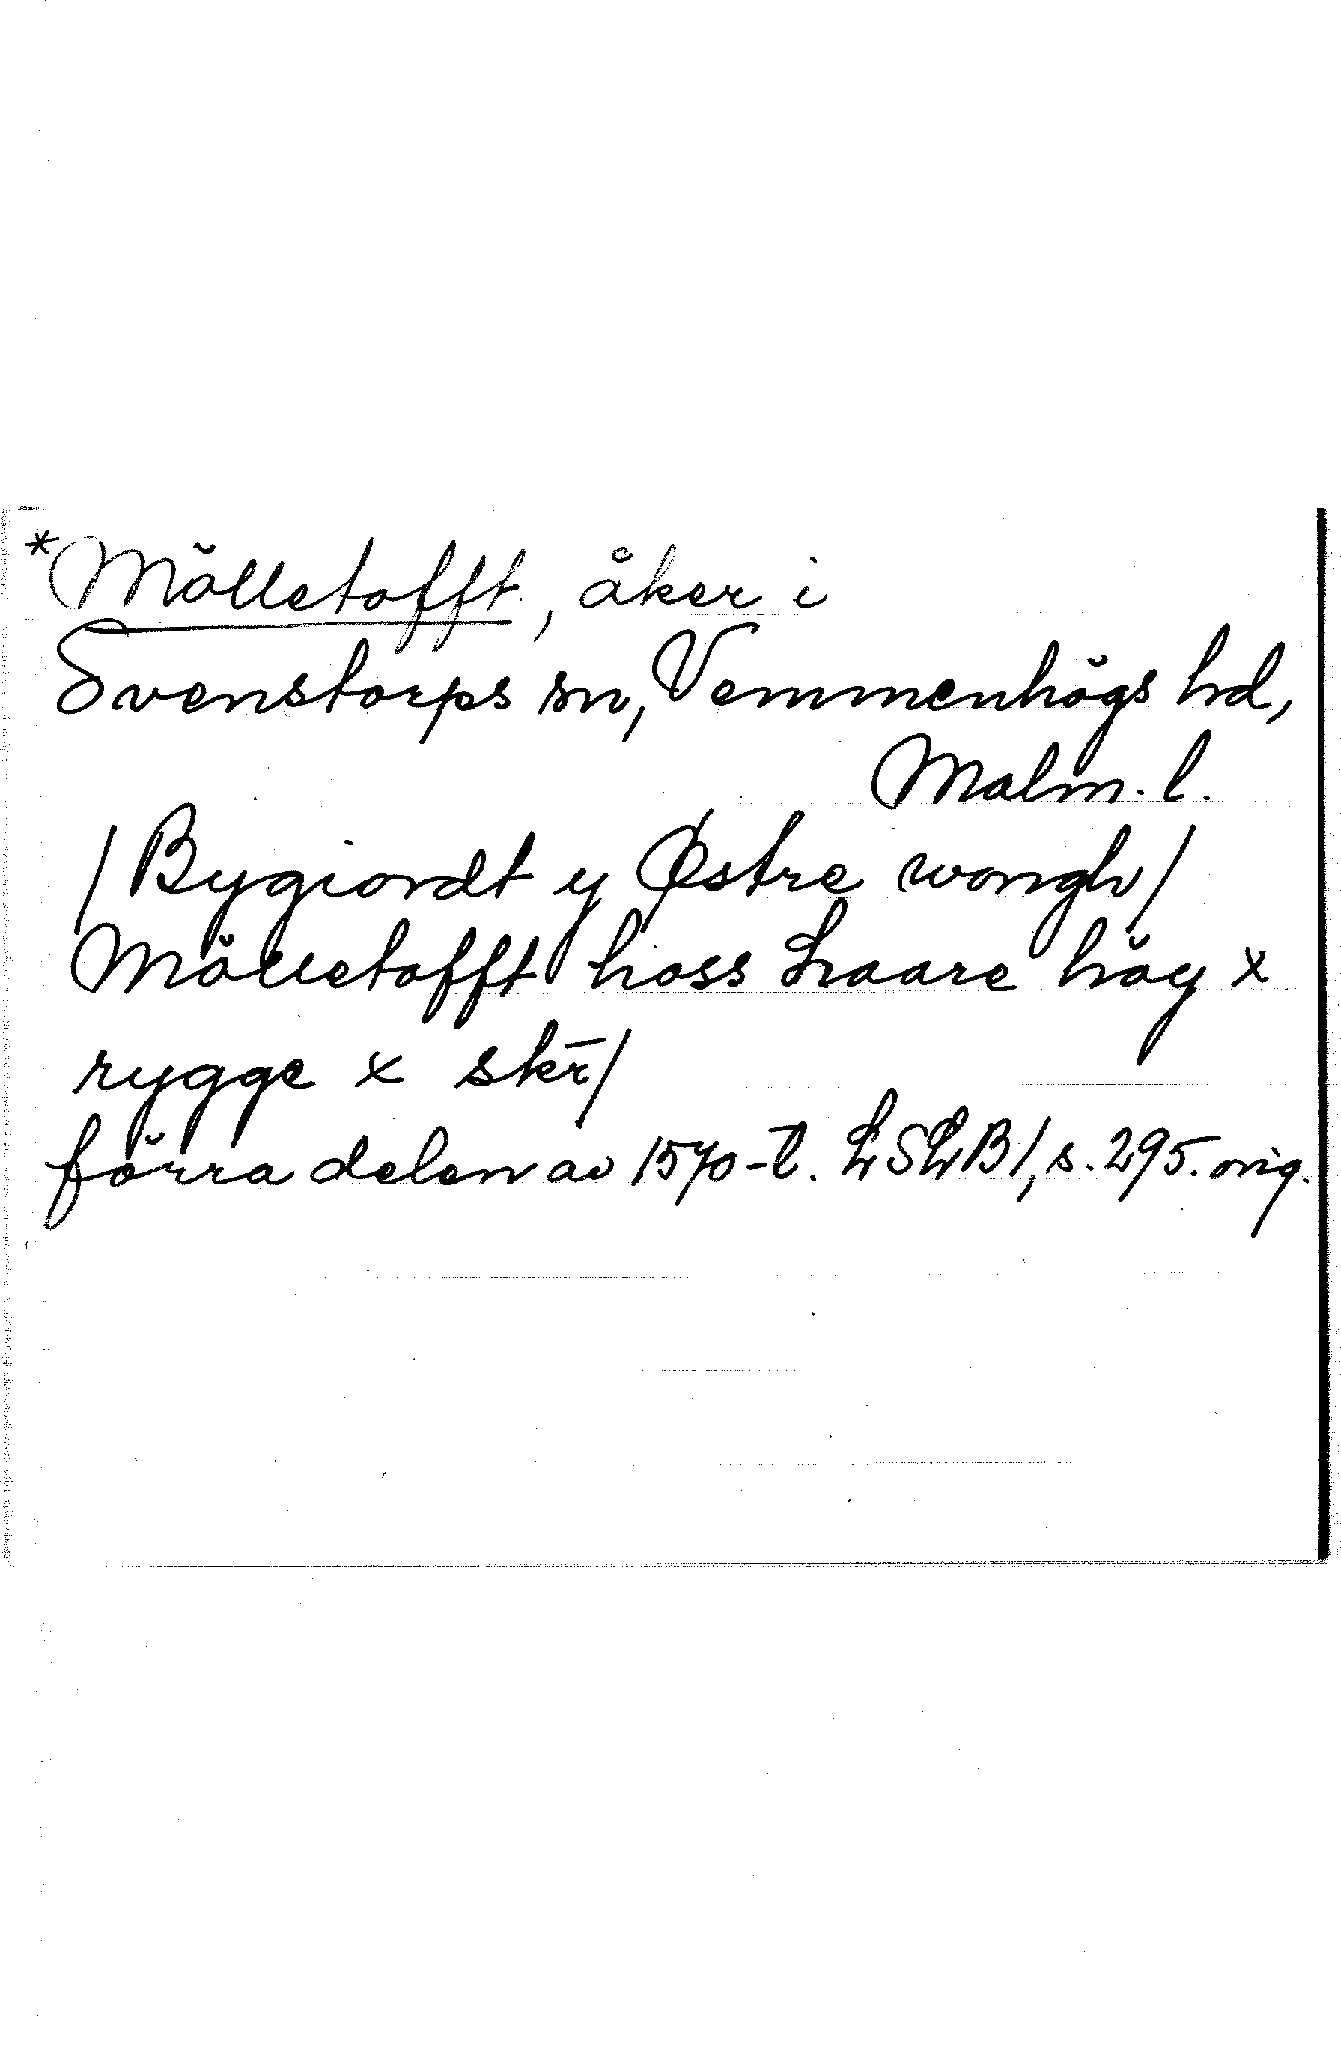 *Mölletofft, åker i
Svenstorps sn, Vemmenhögs hd,
Malm. l.
/Bygiordt y Østre wongh/
Mölletofft hoss haare höy x
rygge x skr̄/
förra delen av 1570-t. LSLB1, s. 295. orig.